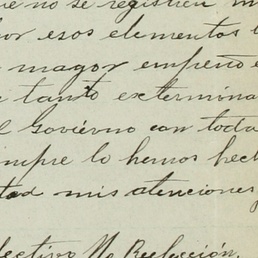 ue no se registren m
por esos elementos
mayor empeño e
tanto extermina
l Govierno con toda
iempre lo hemos hech
tad mis atenciones
fectivo No Reelección.